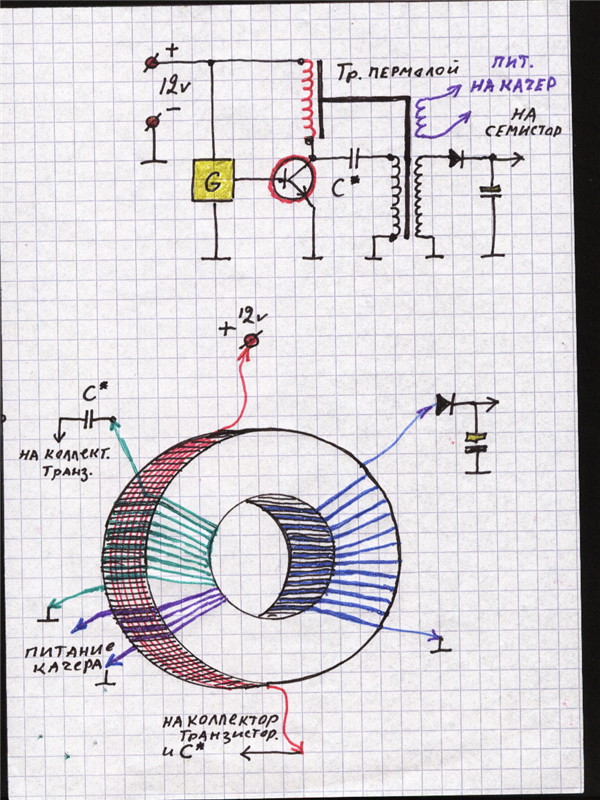 +
12v
−
Тр. ПЕРМАЛОЙ
ПИТ.
НА КАЧЕР
НА
СЕМИСТОР
G
C*
+ 12v
C*
НА КОЛЛЕКТ.
ТРАНЗ.
ПИТАНИЕ
КАЧЕРА
НА КОЛЛЕКТОР
ТРАНЗИСТОР.
И C*